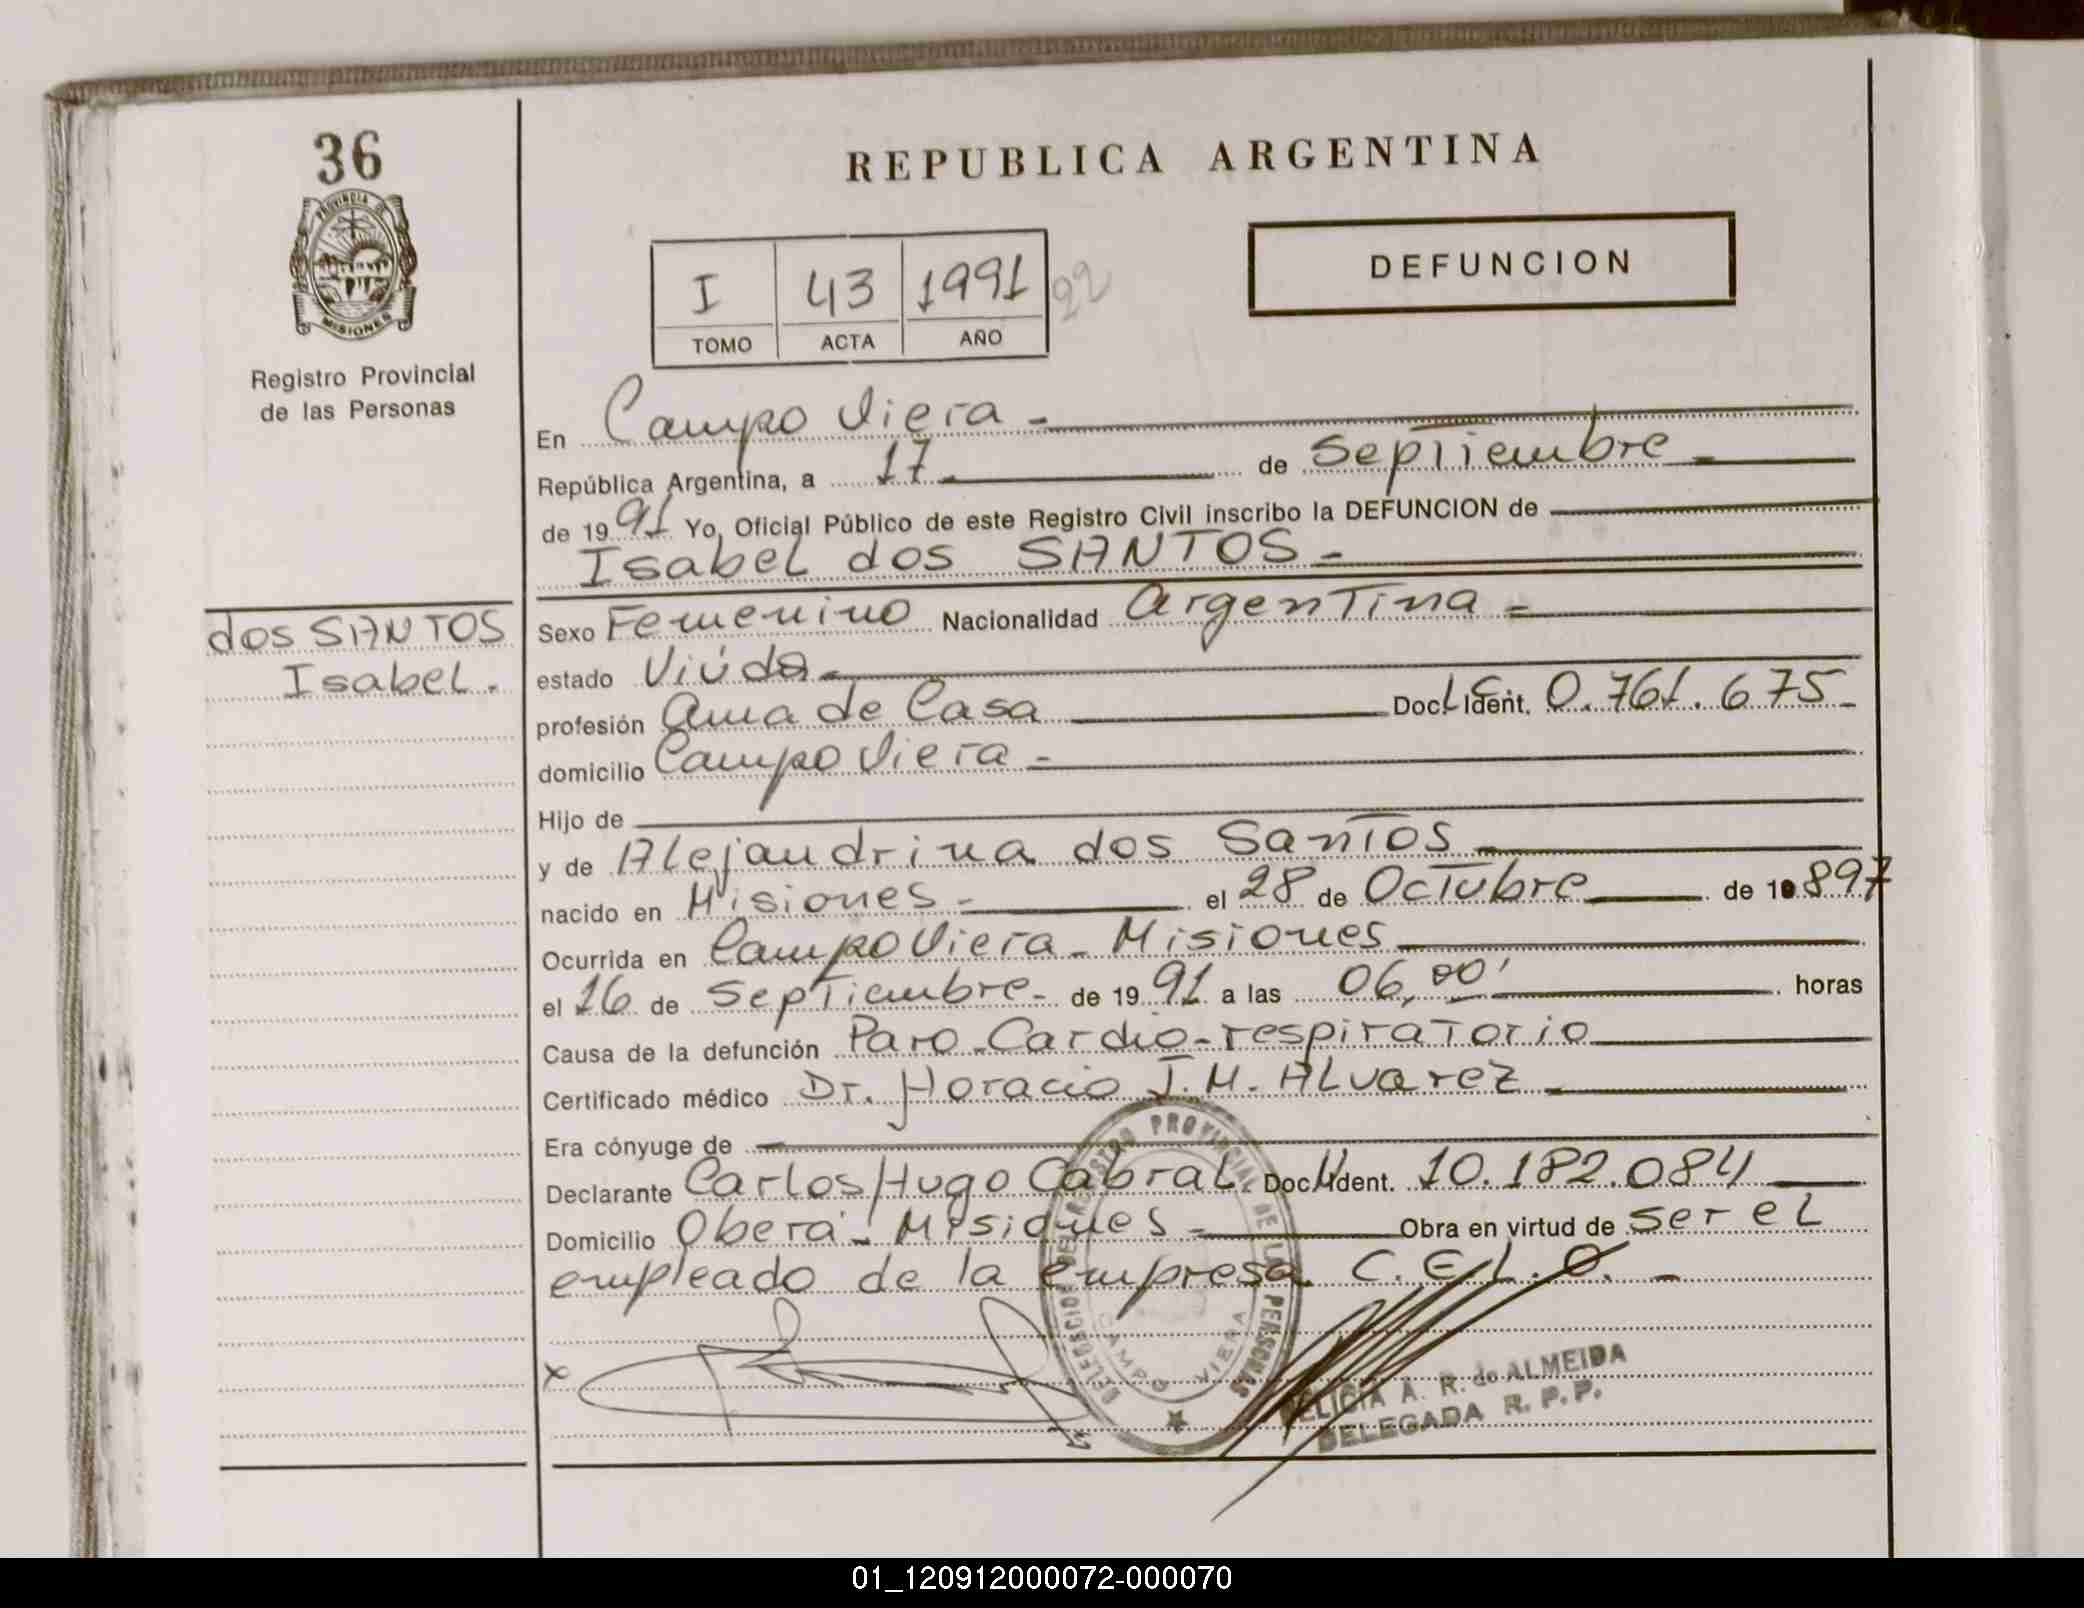 36
PROVINCIA DE
MISIONES
Registro Provincial
de las Personas
dos SANTOS
Isabel.
REPUBLICA ARGENTINA
I 43 1991 22
TOMO ACTA AÑO
DEFUNCION
En Campo Viera -
República Argentina, a 17 - de Septiembre -
de 1991 Yo, Oficial Público de este Registro Civil inscribo la DEFUNCION de
Isabel dos SANTOS -
Sexo Femenino Nacionalidad Argentina -
estado Viúda -
profesión Ama de Casa Doc. L.C. Ident. 0.761.675 -
domicilio Campo Viera -
Hijo de
y de Alejandrina dos Santos -
nacido en Misiones - el 28 de Octubre de 1897
Ocurrida en Campo Viera - Misiones
el 16 de Septiembre - de 1991 a las 06,00' horas
Causa de la defunción Paro - Cardio - respiratorio
Certificado médico Dr. Horacio J. M. Alvarez -
Era cónyuge de
Declarante Carlos Hugo Cabral. Doc. Ident. 10.182.084
Domicilio Oberá - Misiones - Obra en virtud de ser el
empleado de la empresa C.E.L.O. -
DELEGACION DEL REGISTRO PROVINCIAL DE LAS PERSONAS
CAMPO VIERA
x
A. R. de ALMEIDA
DELEGADA R. P. P.
01_120912000072-000070